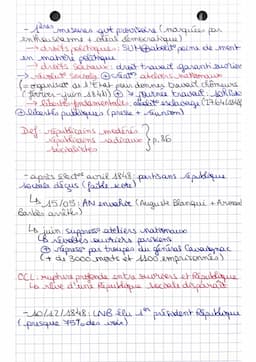 - 1ères mesures gvt provisoire (marquées par
enthousiasme + idéal démocratique)
→ droits politiques: SUM + abolit° peine de mort
en matière politique
→ droits sociaux: droit travail garanti ouvrier
ateliers nationaux
(= organisat° de l'Etat pour donner travail chômeurs
(février-juin 1848) journée travail:
→ libertés fondamentales: esclavage (27/04/1848)
⊕ libertés publiques (presse + réunion)
Def: républicains modérés
républicains radicaux } p.86
socialistes
- après élect° avril 1848: partisans république
sociale déçus (faible score)
↳ 15/05: AN envahit (Auguste Blanqui + Armand
Barbès arrêtés)
↳ juin: suppress° ateliers nationaux
↳ révoltes ouvriers parisiens
⊕ réprimé par troupes du général Cavaignac
(+ de 3000 morts et 1500 emprisonnés)
CCL: rupture profonde entre ouvriers et République
↳ rêve d'une république sociale disparaît
- 10/12/1848: LNB élu 1er président République
(presque 75% des voix)